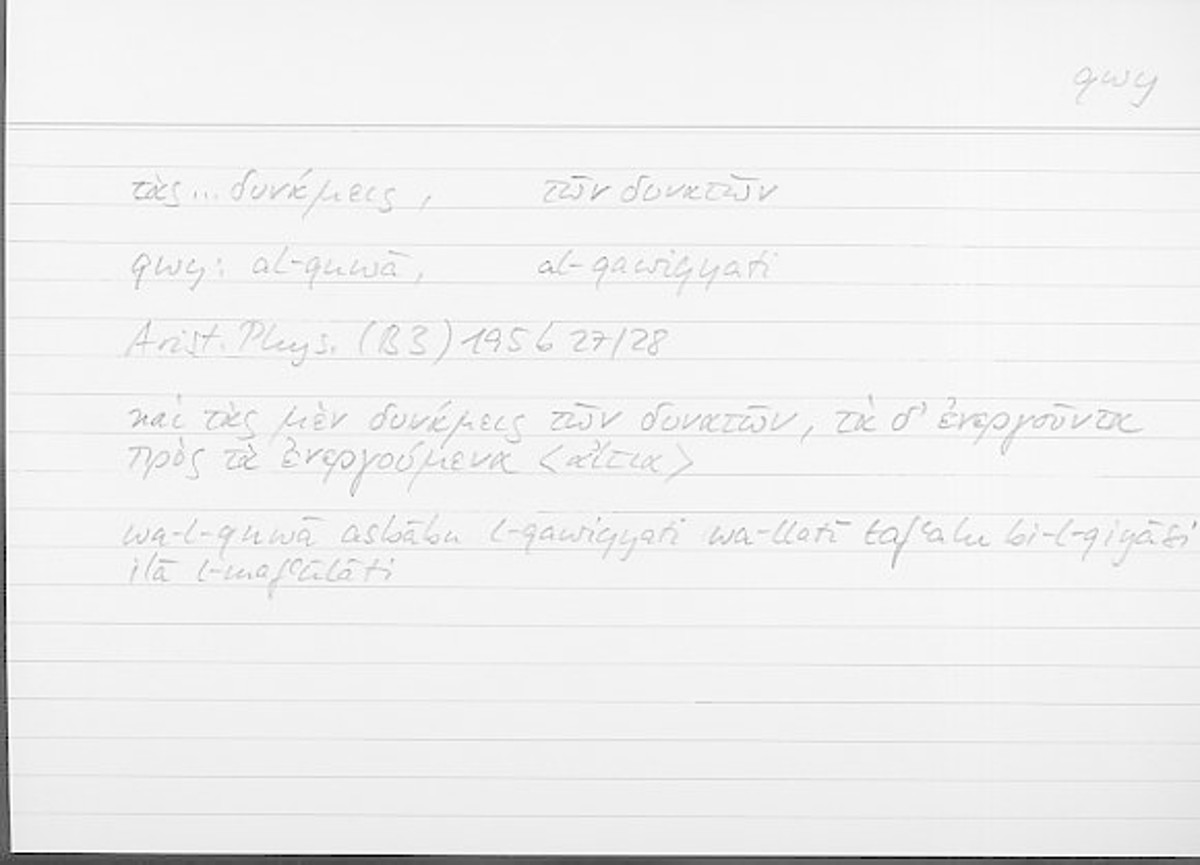 qwy
τὰς ... δυνάμεις, τῶν δυνατῶν
qwy: al-quwā, al-qawiyyati
Arist. Phys. (B3) 195 b 27/28
καὶ τὰς μὲν δυνάμεις τῶν δυνατῶν, τὰ δ' ἐνεργοῦντα
πρὸς τὰ ἐνεργούμενα <αἴτια>
wa-l-quwā asbābu l-qawiyyati wa-llatī tafʿalu bi-l-qiyāsi
ilā l-mafʿūlāti